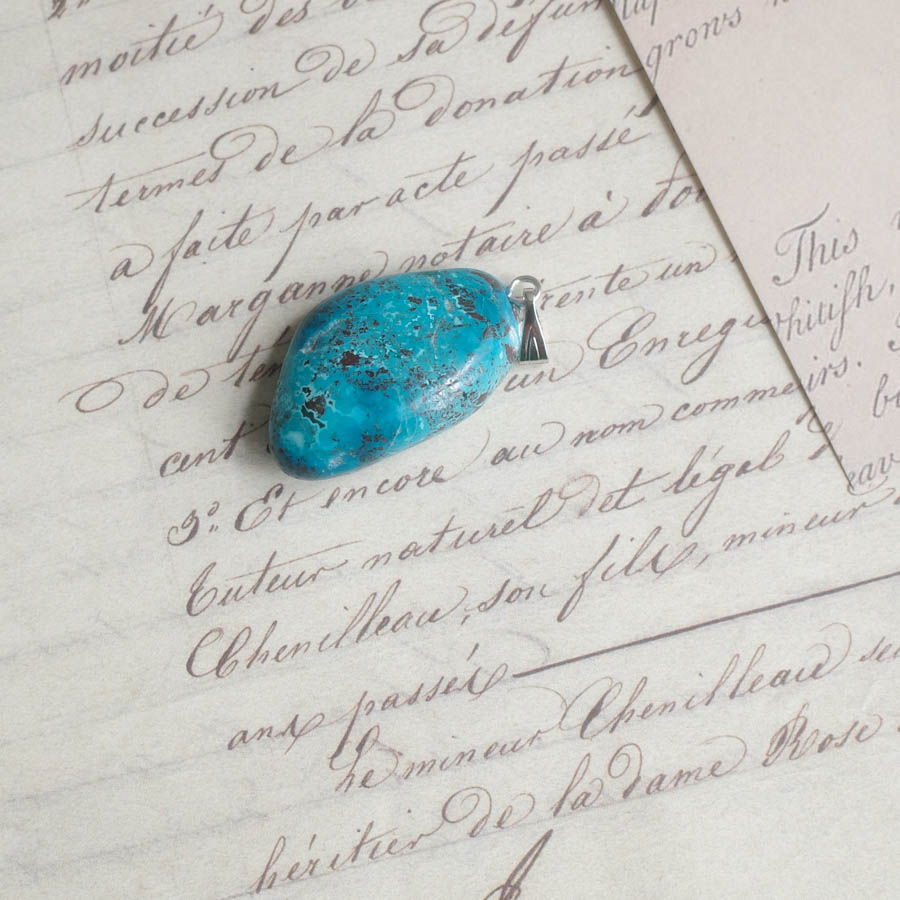 moitié des
succession de sa défun
termes de la donation
a faite par acte passé
Marganne notaire à
de ten rente un
cent un Enregi
3° Et encore au nom comme
Tuteur naturel et légal
Chenilleau, son fils, mineur
ans passés
Le mineur Chenilleau
héritier de la dame Rose
grows
This
whitish,